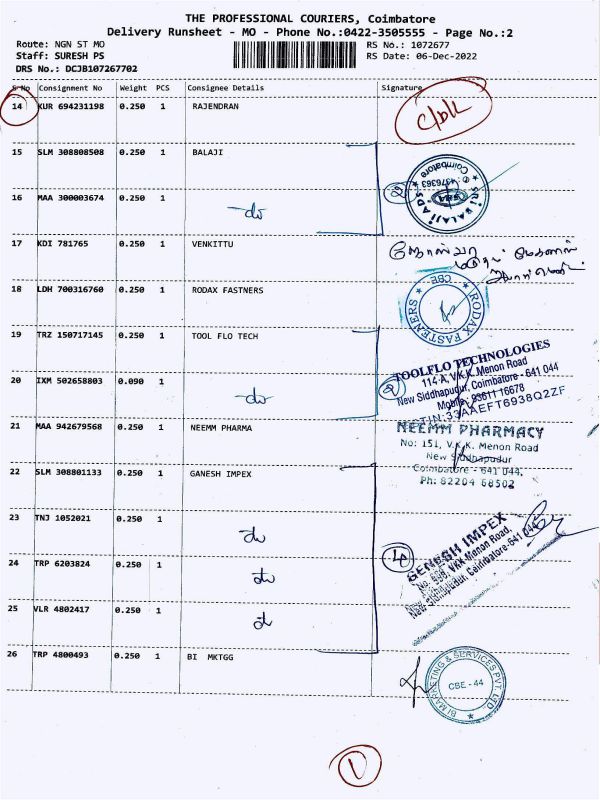 THE PROFESSIONAL COURIERS, Coimbatore
Delivery Runsheet - MO - Phone No.:0422-3505555 - Page No.:2
Route: NGN ST MO
Staff: SURESH PS
DRS No.: DCJB107267702
RS No.: 1072677
RS Date: 06-Dec-2022
S No Consignment No Weight PCS Consignee Details Signature
14 KUR 694231198 0.250 1 RAJENDRAN
15 SLM 308808508 0.250 1 BALAJI
2
SRI BALAJI ADS
Coimbatore
4376363
16 MAA 300003674 0.250 1 -do-
17 KDI 781765 0.250 1 VENKITTU
18 LDH 700316760 0.250 1 RODAX FASTNERS
CBE
RODAX FASTENERS
19 TRZ 150717145 0.250 1 TOOL FLO TECH
2
TOOLFLO TECHNOLOGIES
114-A, V.K.K. Menon Road
New Siddhapudur, Coimbatore - 641 044
Mobile: 93611 16678
20 IXM 502658803 0.090 1 -do-
21 MAA 942679568 0.250 1 NEEMM PHARMA
NEEMM PHARMACY
No: 151, V.K.K. Menon Road
New Siddhapudur
Coimbatore - 641 044.
Ph: 82204 68502
22 SLM 308801133 0.250 1 GANESH IMPEX
23 TNJ 1052021 0.250 1 do
4
GENEGH IMPEX
VKK Menon Road,
New Siddhapudur, Coimbatore-641 044
24 TRP 6203824 0.250 1 do
25 VLR 4802417 0.250 1 do
26 TRP 4800493 0.250 1 BI MKTGG
BI MARKETING & SERVICES PVT. LTD
CBE - 44